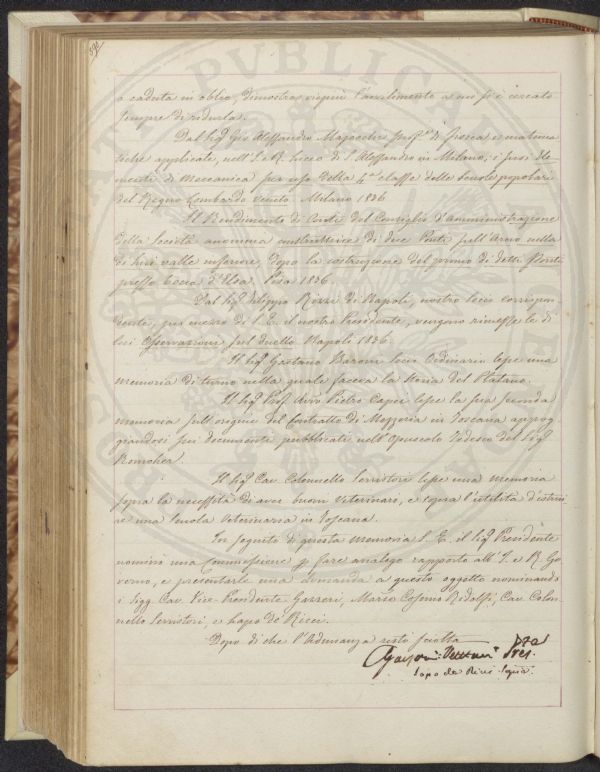 590
o caduta in oblio, dimostra ogni l'avvilimento a cui si è cercato
sempre di ridurla.
Dal Sig. Gio Alessandro Majocchi Prof. di Fisica e matema
tiche applicate, nell'I. e R. Liceo di S. Alessandro in Milano; i suoi Ele
menti di Meccanica per uso della 4.a classe delle Scuole popolari
del Regno Lombardo Veneto. Milano 1836
Il Rendimento di Conti del Consiglio d'amministrazione
della Società anonima costruttrice di due Ponti sull'Arno nella
di lui valle inferiore, dopo la costruzione del primo di detti Ponti
presso bocca d'Elsa. Pisa 1836.
Dal Sig. Filippo Rizzi di Napoli, nostro Socio corrispon
dente, per mezzo di S. E. il nostro Presidente, vengono rimesse le di
lui Osservazioni sul duello Napoli 1836.
Il Sig. Gaetano Baroni Socio Ordinario lesse una
memoria di turno nella quale faceva la storia del Platano.
Il Sig. Prof. Avv. Pietro Capei lesse la sua seconda
memoria sull'origine del Contratto di Mezzeria in Toscana appog
giandosi sui documenti pubblicati nell'Opuscolo Tedesco del Sig.
Il Sig. Cav. Colonnello Serristori lesse una memoria
sopra la necessità di aver buoni Veterinari, e sopra l'utilità d'istitui
re una Scuola Veterinaria in Toscana.
In seguito di questa memoria S. E. il Sig. Presidente
nominò una Commissione p. fare analogo rapporto all'I. e R. Go
verno, e presentarle una domanda a questo oggetto nominando
i Sigg. Cav. Vice-Presidente Gazzeri, March. Cosimo Ridolfi, Cav. Colon
nello Serristori, e Lapo de' Ricci.
Dopo di che l'Adunanza restò sciolta
Pres.
Lapo de Ricci Seg.